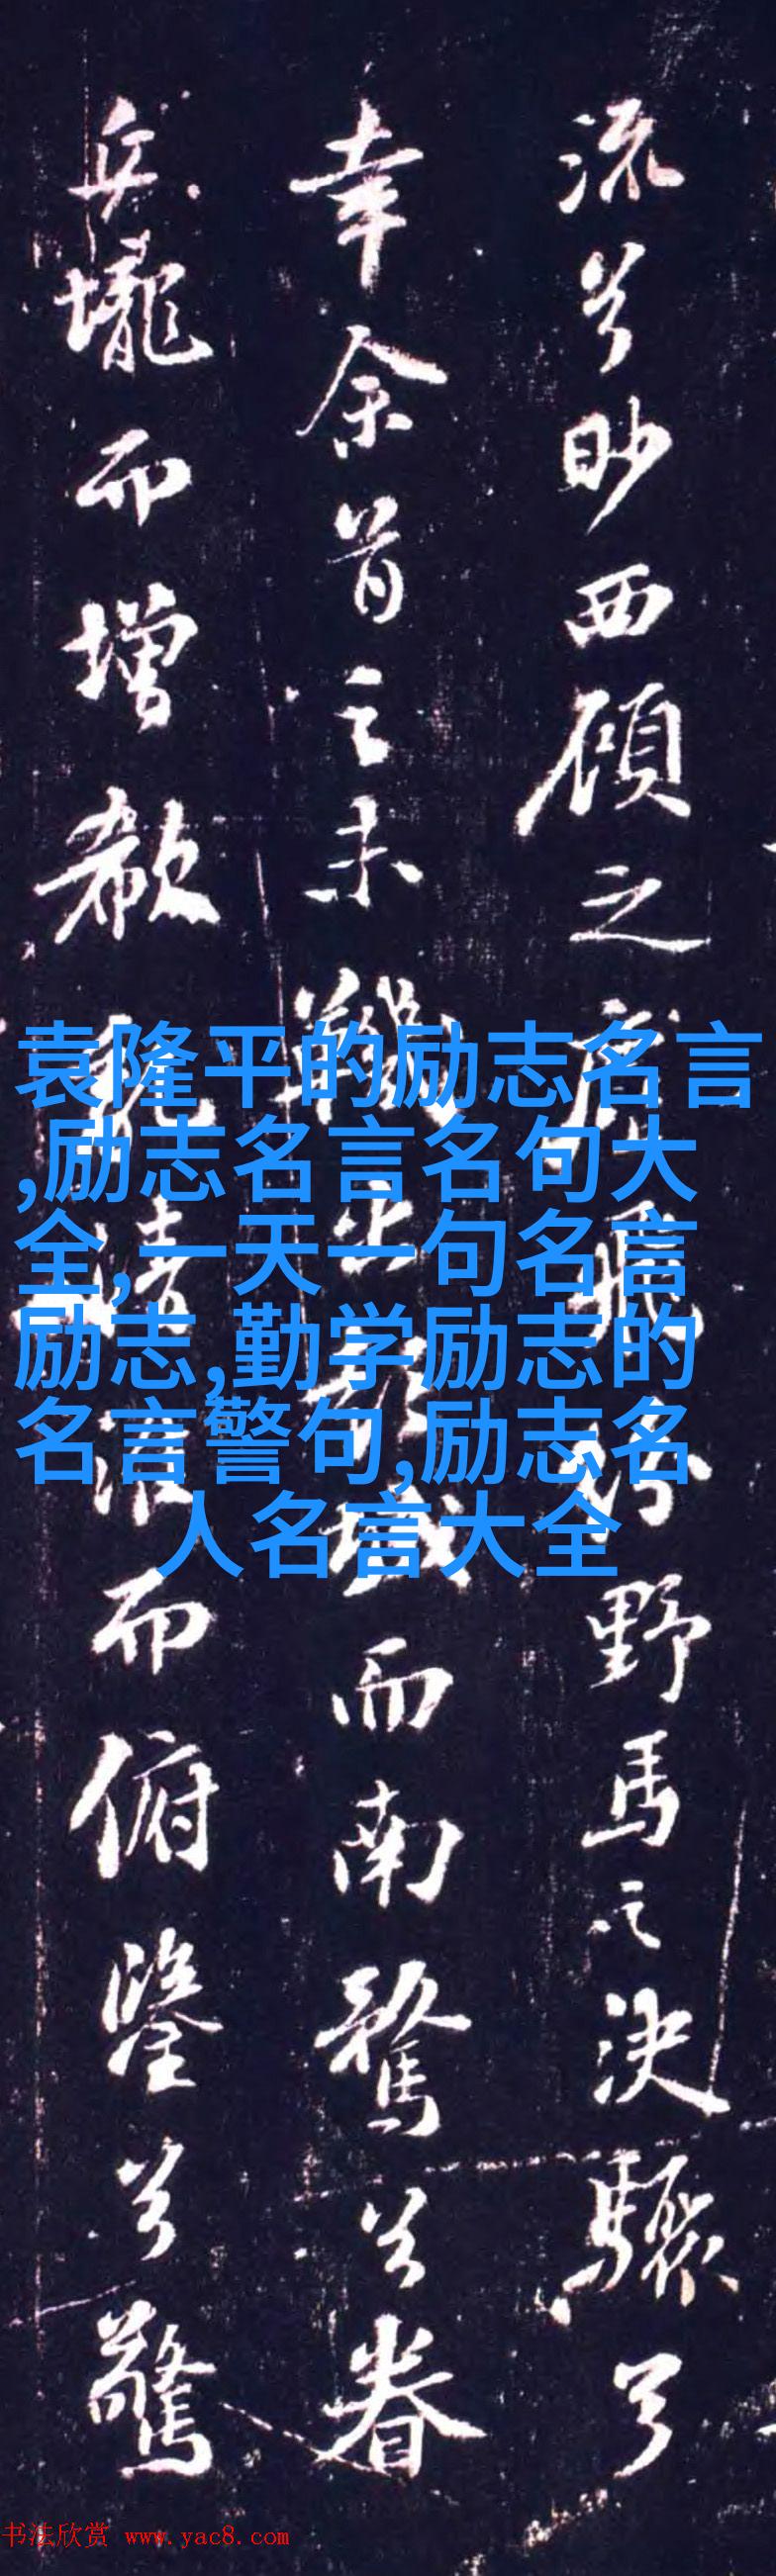 流兮眇西顧之飛野馬之決驟兮
幸余首之未而南騖兮眷
丘壠而增欷清而俯鑒兮驚
袁隆平的励志名言
,励志名言名句大
全,一天一句名言
励志,勤学励志的
名言警句,励志名
人名言大全
书法欣赏 www.yac8.com